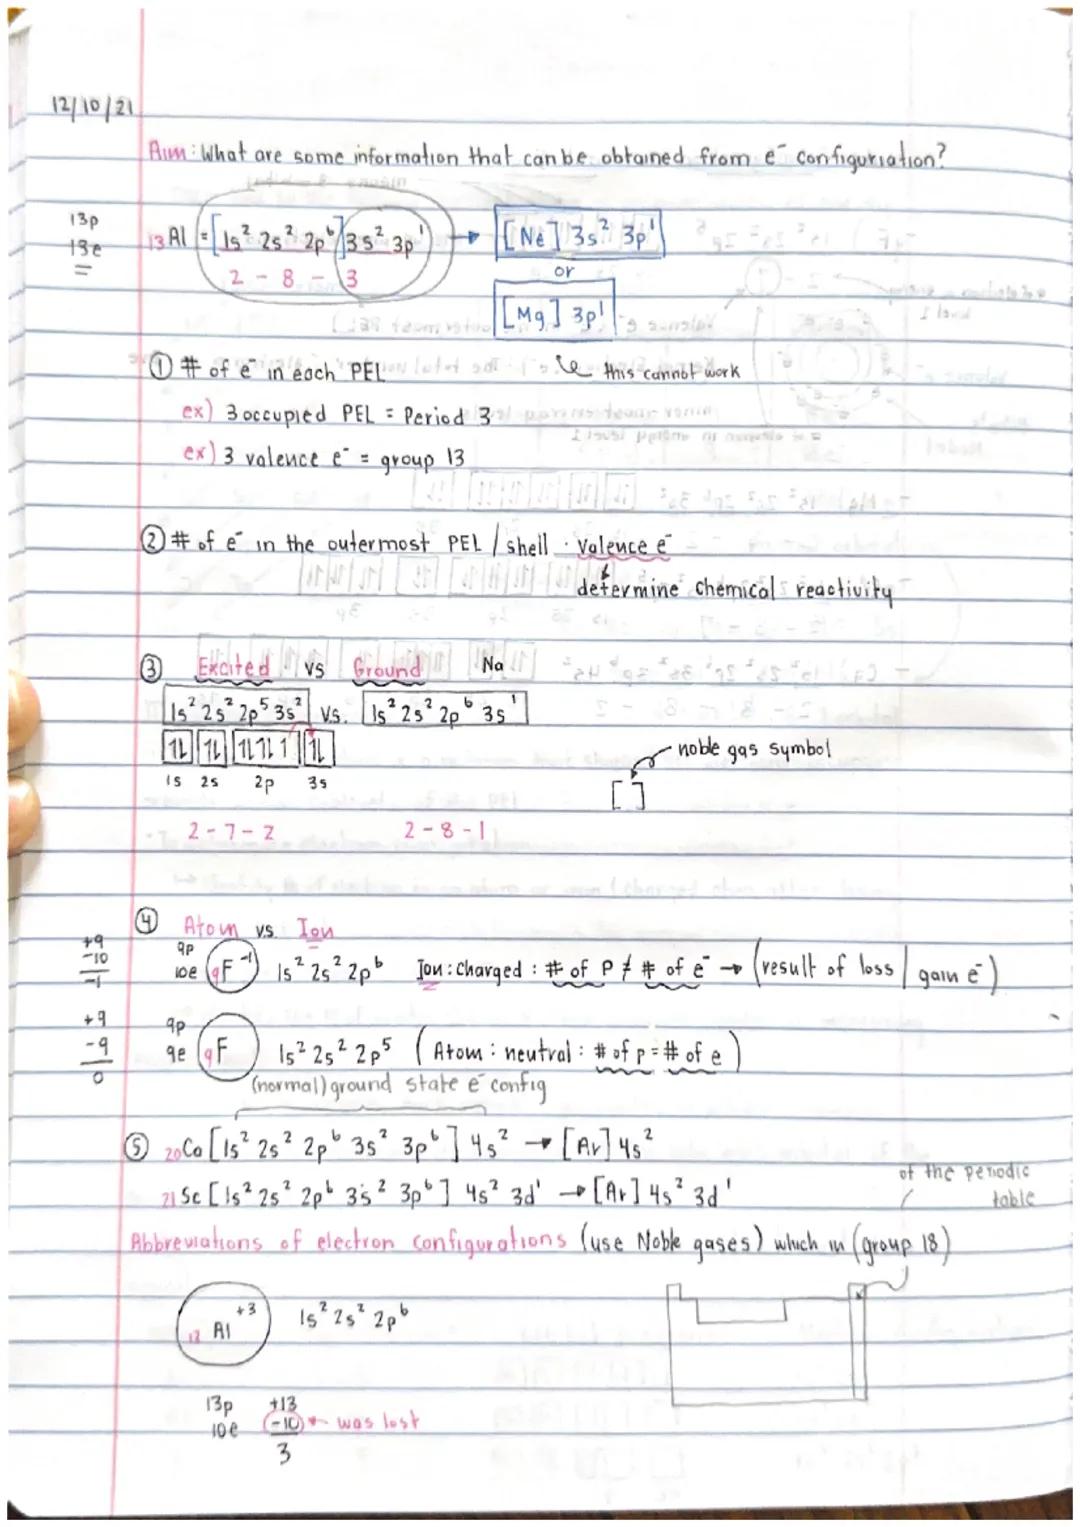 12/10/21
Aim: What are some information that can be obtained from e⁻ configuration?
13p
13e
₁₃Al = [1s² 2s² 2p⁶] 3s² 3p¹ → [Ne] 3s² 3p¹
2 - 8 - 3
or
[Mg] 3p¹
this cannot work
① # of e⁻ in each PEL
ex) 3 occupied PEL = Period 3
ex) 3 valence e⁻ = group 13
② # of e⁻ in the outermost PEL / shell · Valence e⁻
determine chemical reactivity
③ Excited vs Ground Na
1s² 2s² 2p⁵ 3s² v.s. 1s² 2s² 2p⁶ 3s¹
1s 2s 2p 3s
noble gas symbol
[ ]
2-7-2 2-8-1
④ Atom vs. Ion
+9
-10
-1
9p
10e ₉F⁻¹ 1s² 2s² 2p⁶ Ion: charged: # of P ≠ # of e⁻ → (result of loss / gain e⁻)
+9
-9
0
9p
9e ₉F 1s² 2s² 2p⁵ (Atom: neutral: # of p = # of e)
(normal) ground state e⁻ config
⑤ ₂₀Ca [1s² 2s² 2p⁶ 3s² 3p⁶] 4s² → [Ar] 4s²
₂₁Sc [1s² 2s² 2p⁶ 3s² 3p⁶] 4s² 3d¹ → [Ar] 4s² 3d¹
of the periodic
table
Abbreviations of electron configurations (use Noble gases) which in (group 18)
₁₃Al⁺³ 1s² 2s² 2p⁶
13p +13
10e -10 ← was lost
3